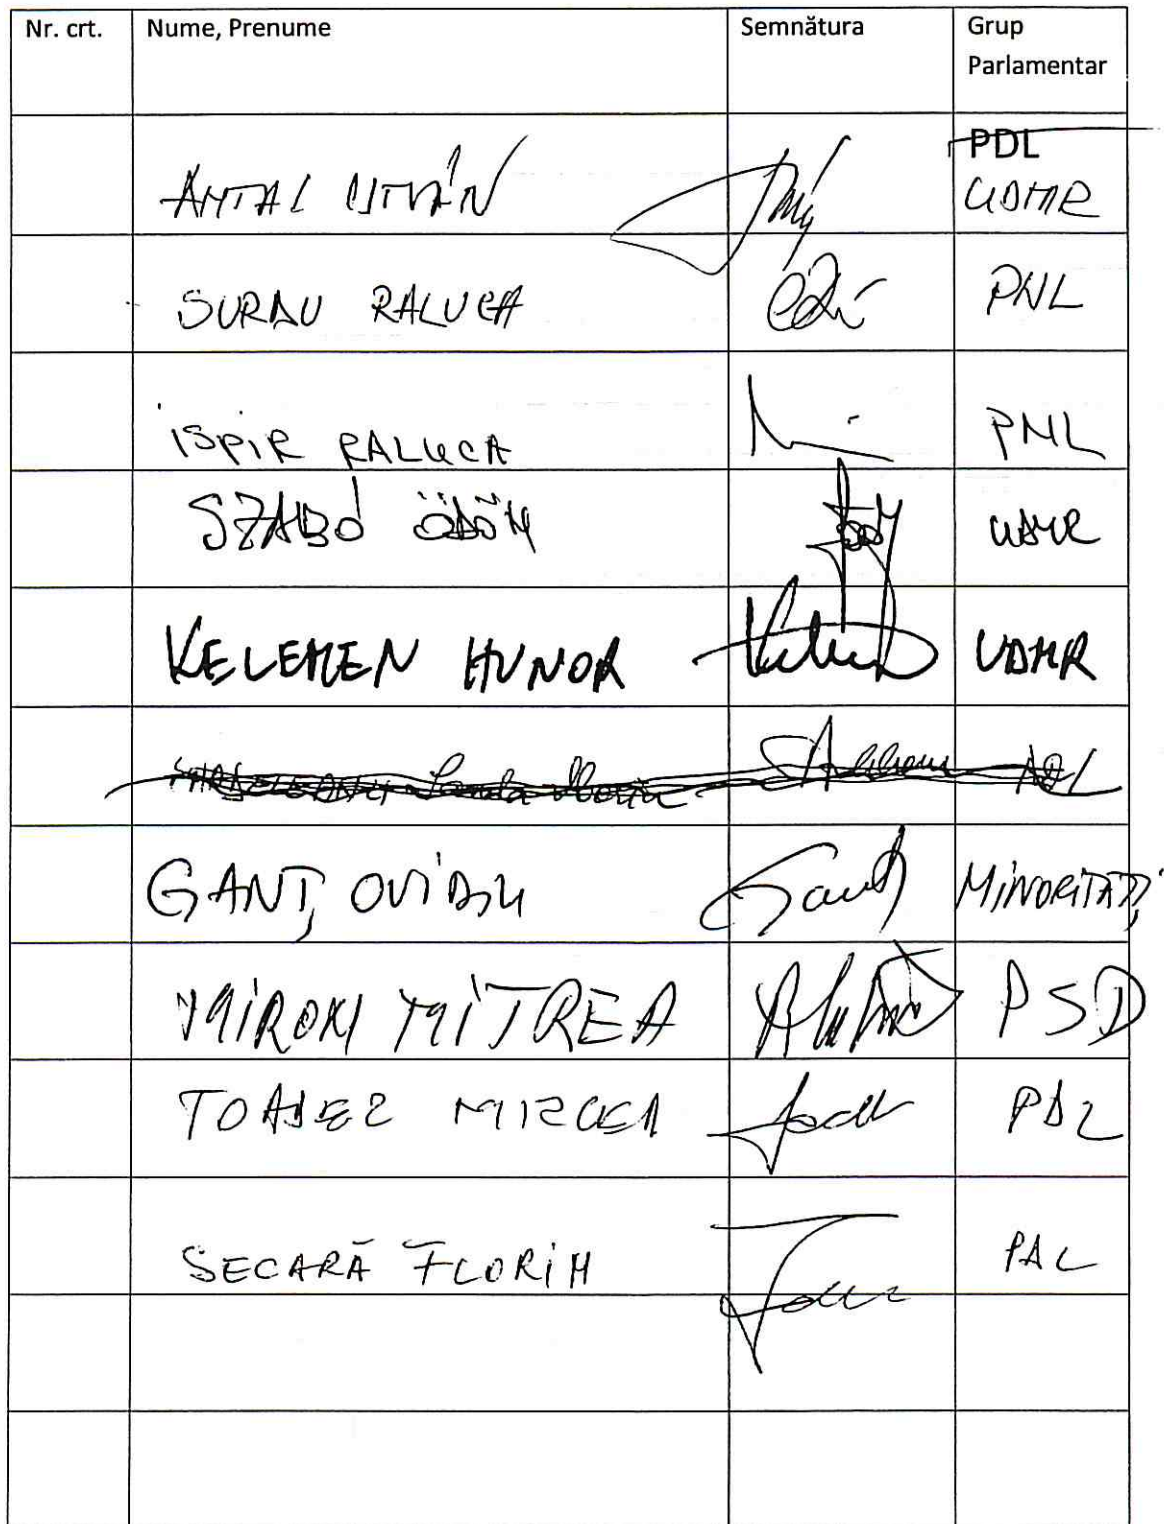 Nr. crt. Nume, Prenume Semnătura Grup Parlamentar
PDL
ANTAL ISTVÁN UDMR
SURDU RALUCA PNL
ISPIR RALUCA PNL
SZABÓ ÖDÖN UDMR
KELEMEN HUNOR UDMR
GANȚ OVIDIU MINORITĂȚI
MIRON MITREA PSD
TOADER MIRCEA PDL
SECARĂ FLORIN PDL